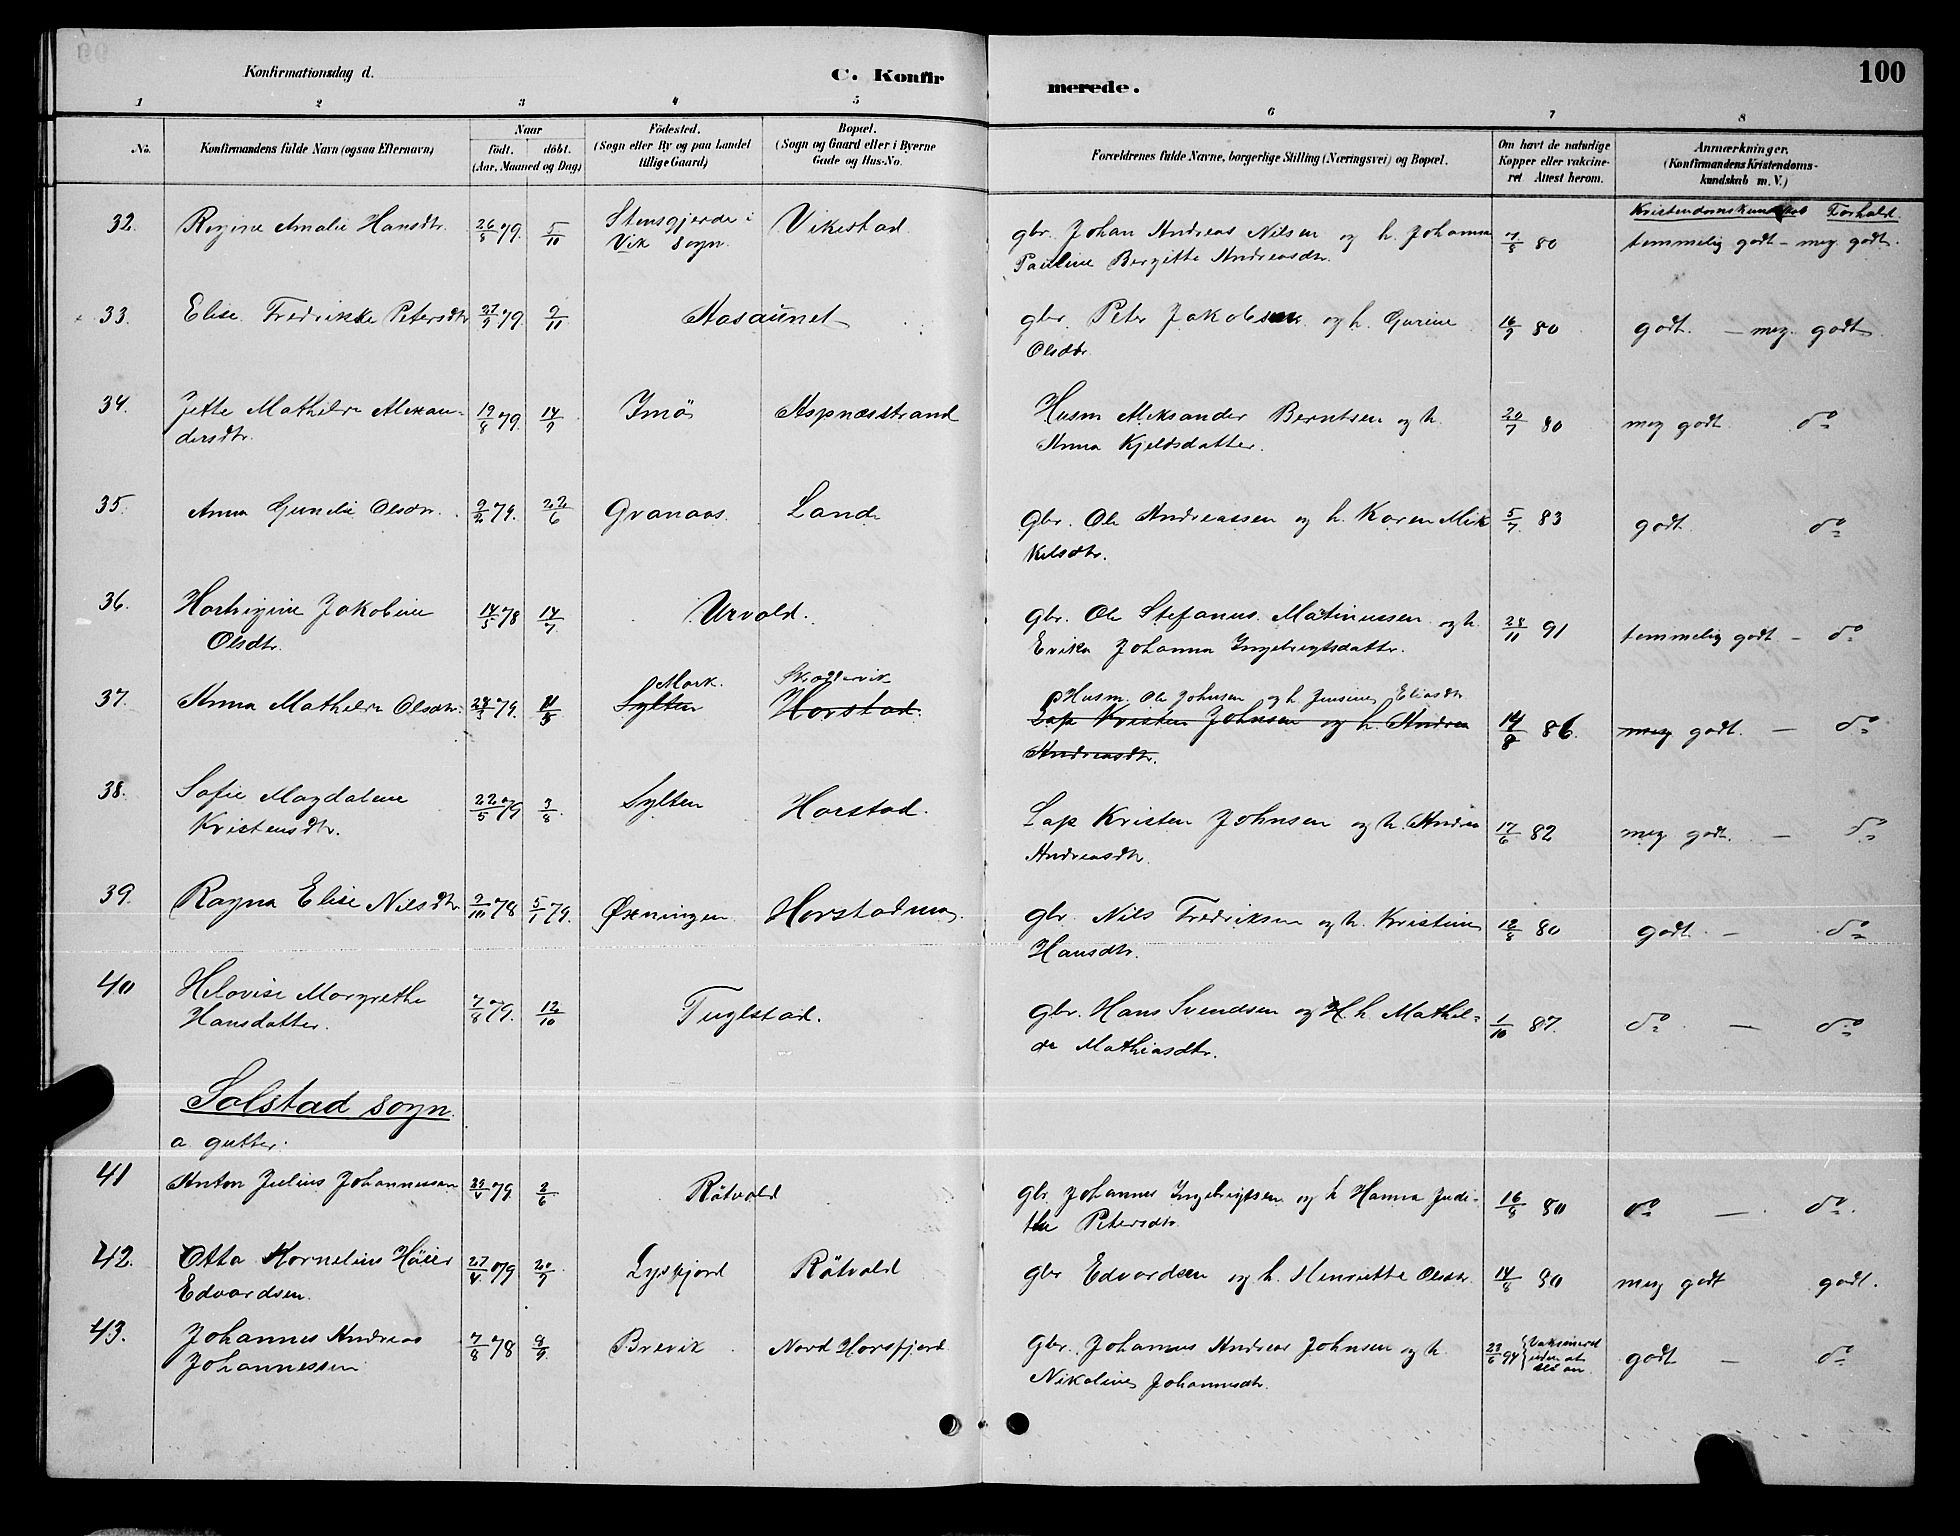 100
Konfirmationsdag d.
C. Konfirmerede.
1 2 3 4 5 6 7 8
No.
Konfirmandens fulde Navn (ogsaa Efternavn)
Naar
födt. döbt.
(Aar, Maaned og Dag)
Födested.
(Sogn eller By og paa Landet
tillige Gaard)
Bopæl.
(Sogn og Gaard eller i Byerne
Gade og Hus-No.
Forældrenes fulde Navne, borgerlige Stilling (Næringsvei) og Bopæl.
Om havt de naturlige
Kopper eller vakcine-
ret Attest herom.
Anmærkninger.
(Konfirmandens Kristendoms-
kundskab m. V.)
Kristendomskundskab Forhold.
32. Regine Amalie Hansdtr. 26/8 79. 5/10 Stensgjerde i Vikestad gbr. Johan Andreas Nilsen og h. Johanna 7/8 80 temmelig godt - meg. godt.
Vik sogn. Pauline Bergitte Andreasdtr.
33. Elise Fredrikke Petersdtr 27/9 79. 9/11 Aasaunet gbr. Peter Jakobsen og h. Gurine 16/9 80 godt. - meg. godt
Olsdtr.
34. Jette Mathilde Alexan- 19/8 79. 14/9 Imö Aspnæsstrand Husm Aleksander Berntsen og h. 20/7 80 meg godt do
dersdtr. Anna Kjeldsdatter.
35. Anna Gunelie Olsdtr. 9/2 79. 22/6 Granaas. Lande Gbr. Ole Andreassen og h. Karen Mik 5/7 83 godt. do
kelsdtr.
36. Hartvigine Jakobine 14/5 78 14/7 Urvold. gbr. Ole Stefanus Matinussen og h. 28/11 91 temmelig godt - do
Olsdtr. Erika Johanna Ingebrigtsdatter.
Mork. Skoddervik Husm. Ole Johnsen og h Jensine Eliasdtr
37. Anna Mathilde Olsdtr. 79. Sylten Horstad. Lap Kristen Johnsen og h. Andrea 14/8 86. meg godt. - do
Andreasdtr.
38. Sofie Magdalene 22/5 79 3/8 Sylten Horstad. Lap Kristen Johnsen og h. Andrea 17/6 82 meg godt. - do
Kristensdtr. Andreasdtr.
39. Ragna Elise Nilsdtr 2/10 78 5/1 79. Øxningen Horstadmo. gbr. Nils Fredriksen og h. Kristine 12/8 80 godt. - do
Hansdtr.
40 Helovise Margrethe 7/8 79. 12/10 Fuglstad. gbr. Hans Svendsen og h. Mathil- 1/10 87. do - do
Hansdatter. de Mathiasdtr.
Solstad sogn.
a. gutter.
41 Anton Julius Johannessen 79. 2/6 Rötvold gbr. Johannes Ingebrigtsen og h Hanna Judi- 16/8 80 do - do.
the Petersdtr.
42. Otto Kornelius Höier 27/4 79 20/9 Lysfjord Rötvold gbr Edvardsen og h. Henriette Olsdtr. 14/8 80 meg godt godt.
Edvardsen.
43. Johannes Andreas 7/8 78 9/9 Brevik Nord Horsfjord gbr. Johannes Andreas Johnsen og h. 23/6 94 Vaksineret godt - do
Johannessen Nikoline Johannesdtr. uden at
slå an